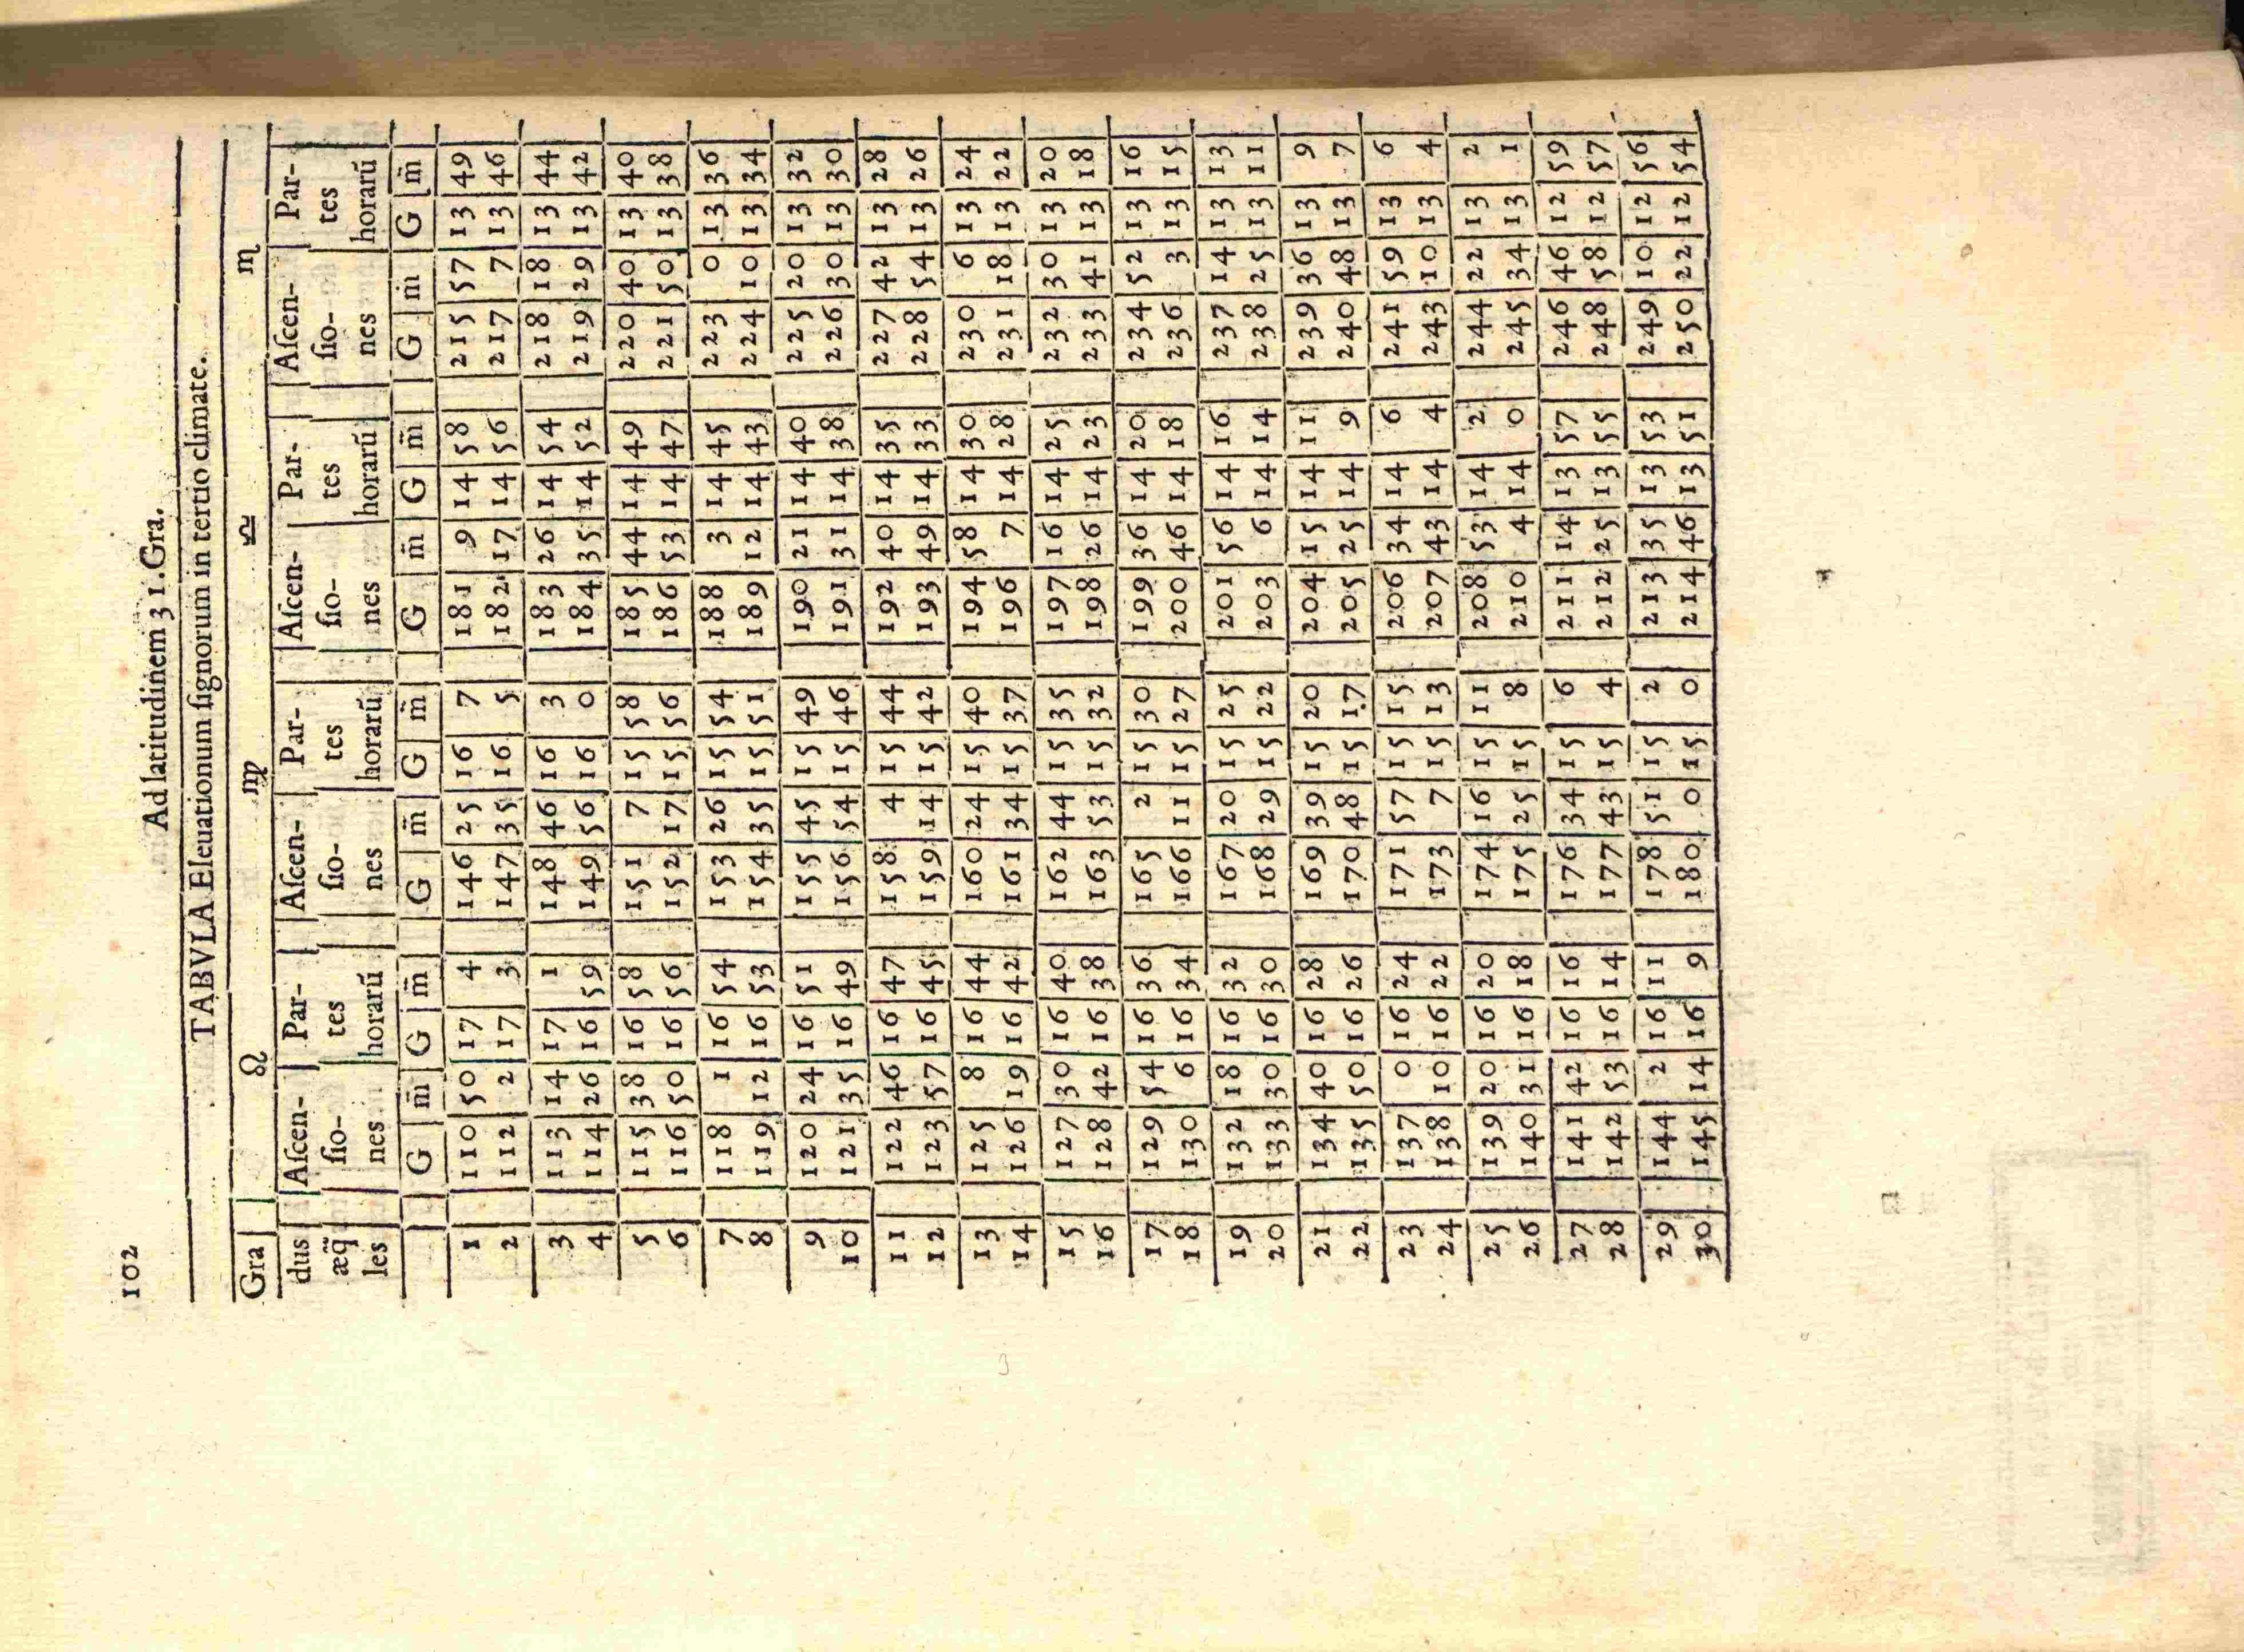 102
Ad latitudinem 31.Gra.
TABVLA Eleuationum ſignorum in tertio climate.
Gra ♌ ♍ ♎ ♏
dus Aſcen- Par- Aſcen- Par- Aſcen- Par- Aſcen- Par-
æq̃ ſio- tes ſio- tes ſio- tes ſio- tes
les nes horarũ nes horarũ nes horarũ nes horarũ
G m̃ G m̃ G m̃ G m̃ G m̃ G m̃ G m̃ G m̃
1 110 50 17 4 146 25 16 7 181 9 14 58 215 57 13 49
2 112 2 17 3 147 35 16 5 182 17 14 56 217 7 13 46
3 113 14 17 1 148 46 16 3 183 26 14 54 218 18 13 44
4 114 26 16 59 149 56 16 0 184 35 14 52 219 29 13 42
5 115 38 16 58 151 7 15 58 185 44 14 49 220 40 13 40
6 116 50 16 56 152 17 15 56 186 53 14 47 221 50 13 38
7 118 1 16 54 153 26 15 54 188 3 14 45 223 0 13 36
8 119 12 16 53 154 35 15 51 189 12 14 43 224 10 13 34
9 120 24 16 51 155 45 15 49 190 21 14 40 225 20 13 32
10 121 35 16 49 156 54 15 46 191 31 14 38 226 30 13 30
11 122 46 16 47 158 4 15 44 192 40 14 35 227 42 13 28
12 123 57 16 45 159 14 15 42 193 49 14 33 228 54 13 26
13 125 8 16 44 160 24 15 40 194 58 14 30 230 6 13 24
14 126 19 16 42 161 34 15 37 196 7 14 28 231 18 13 22
15 127 30 16 40 162 44 15 35 197 16 14 25 232 30 13 20
16 128 42 16 38 163 53 15 32 198 26 14 23 233 41 13 18
17 129 54 16 36 165 2 15 30 199 36 14 20 234 52 13 16
18 130 6 16 34 166 11 15 27 200 46 14 18 236 3 13 15
19 132 18 16 32 167 20 15 25 201 56 14 16 237 14 13 13
20 133 30 16 30 168 29 15 22 203 6 14 14 238 25 13 11
21 134 40 16 28 169 39 15 20 204 15 14 11 239 36 13 9
22 135 50 16 26 170 48 15 17 205 25 14 9 240 48 13 7
23 137 0 16 24 171 57 15 15 206 34 14 6 241 59 13 6
24 138 10 16 22 173 7 15 13 207 43 14 4 243 10 13 4
25 139 20 16 20 174 16 15 11 208 53 14 2 244 22 13 2
26 140 31 16 18 175 25 15 8 210 4 14 0 245 34 13 1
27 141 42 16 16 176 34 15 6 211 14 13 57 246 46 12 59
28 142 53 16 14 177 43 15 4 212 25 13 55 248 58 12 57
29 144 2 16 11 178 51 15 2 213 35 13 53 249 10 12 56
30 145 14 16 9 180 0 15 0 214 46 13 51 250 22 12 54